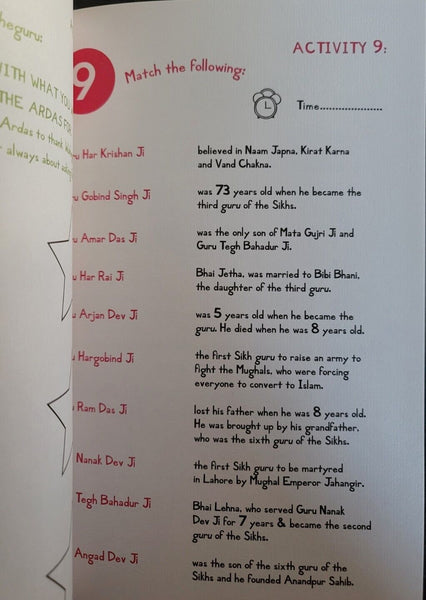 heguru:
ITH WHAT YOU
THE ARDAS FOR
Ardas to thank
always about asking
ACTIVITY 9:
9
Match the following:
Time....................
u Har Krishan Ji
believed in Naam Japna, Kirat Karna
and Vand Chakna.
u Gobind Singh Ji
was 73 years old when he became the
third guru of the Sikhs.
u Amar Das Ji
was the only son of Mata Gujri Ji and
Guru Tegh Bahadur Ji.
u Har Rai Ji
Bhai Jetha, was married to Bibi Bhani,
the daughter of the third guru.
u Arjan Dev Ji
was 5 years old when he became the
guru. He died when he was 8 years old.
u Hargobind Ji
the first Sikh guru to raise an army to
fight the Mughals, who were forcing
everyone to convert to Islam.
u Ram Das Ji
lost his father when he was 8 years old.
He was brought up by his grandfather,
who was the sixth guru of the Sikhs.
Nanak Dev Ji
the first Sikh guru to be martyred
in Lahore by Mughal Emperor Jahangir.
Tegh Bahadur Ji
Bhai Lehna, who served Guru Nanak
Dev Ji for 7 years & became the second
guru of the Sikhs.
Angad Dev Ji
was the son of the sixth guru of the
Sikhs and he founded Anandpur Sahib.